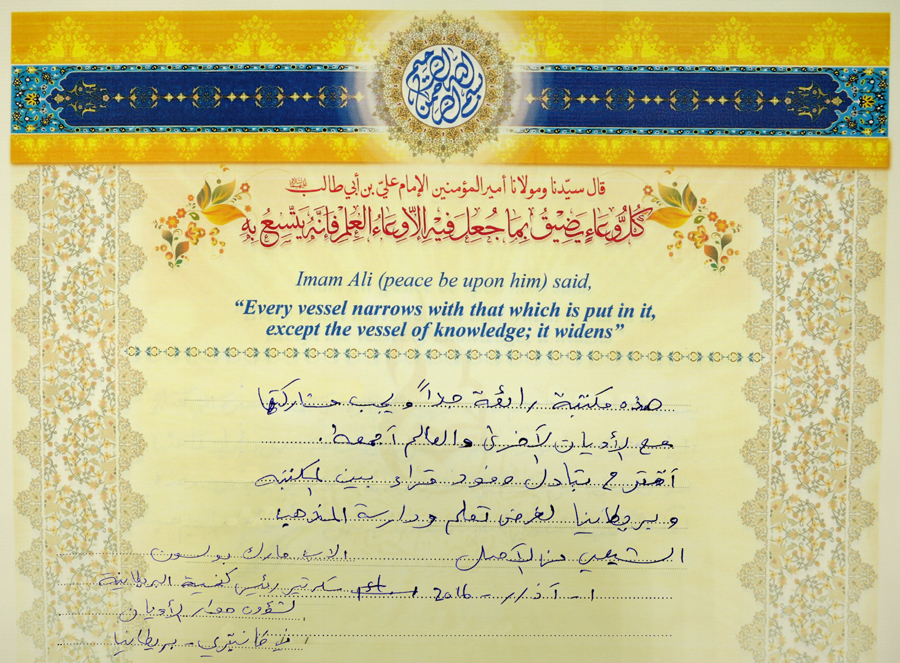 بسم الله الرحمن الرحيم
قال سيّدنا ومولانا أمير المؤمنين الإمام عليّ بن أبي طالب
كُلُّ وِعَاءٍ يَضِيْقُ بِمَا جُعِلَ فِيْهِ إِلّا وِعَاءُ العِلْمِ فَإِنَّهُ يَتَّسِعُ بِهِ
Imam Ali (peace be upon him) said,
“Every vessel narrows with that which is put in it,
except the vessel of knowledge; it widens”
هذه مكتبة رائعة جداً ويجب مشاركتها
مع الأديان الأخرى والعالم أجمعه.
أقترح تبادل وفود قراء بين المكتبة
وبريطانيا لغرض تعلم ودراسة المذهب
الشيعي من الأصل الاب مارك بولسون
١ - آذار - ٢٠١٥ سكرتير رئيس كنيسة البريطانية
لشؤون حوار الأديان
في كانتبري - بريطانيا